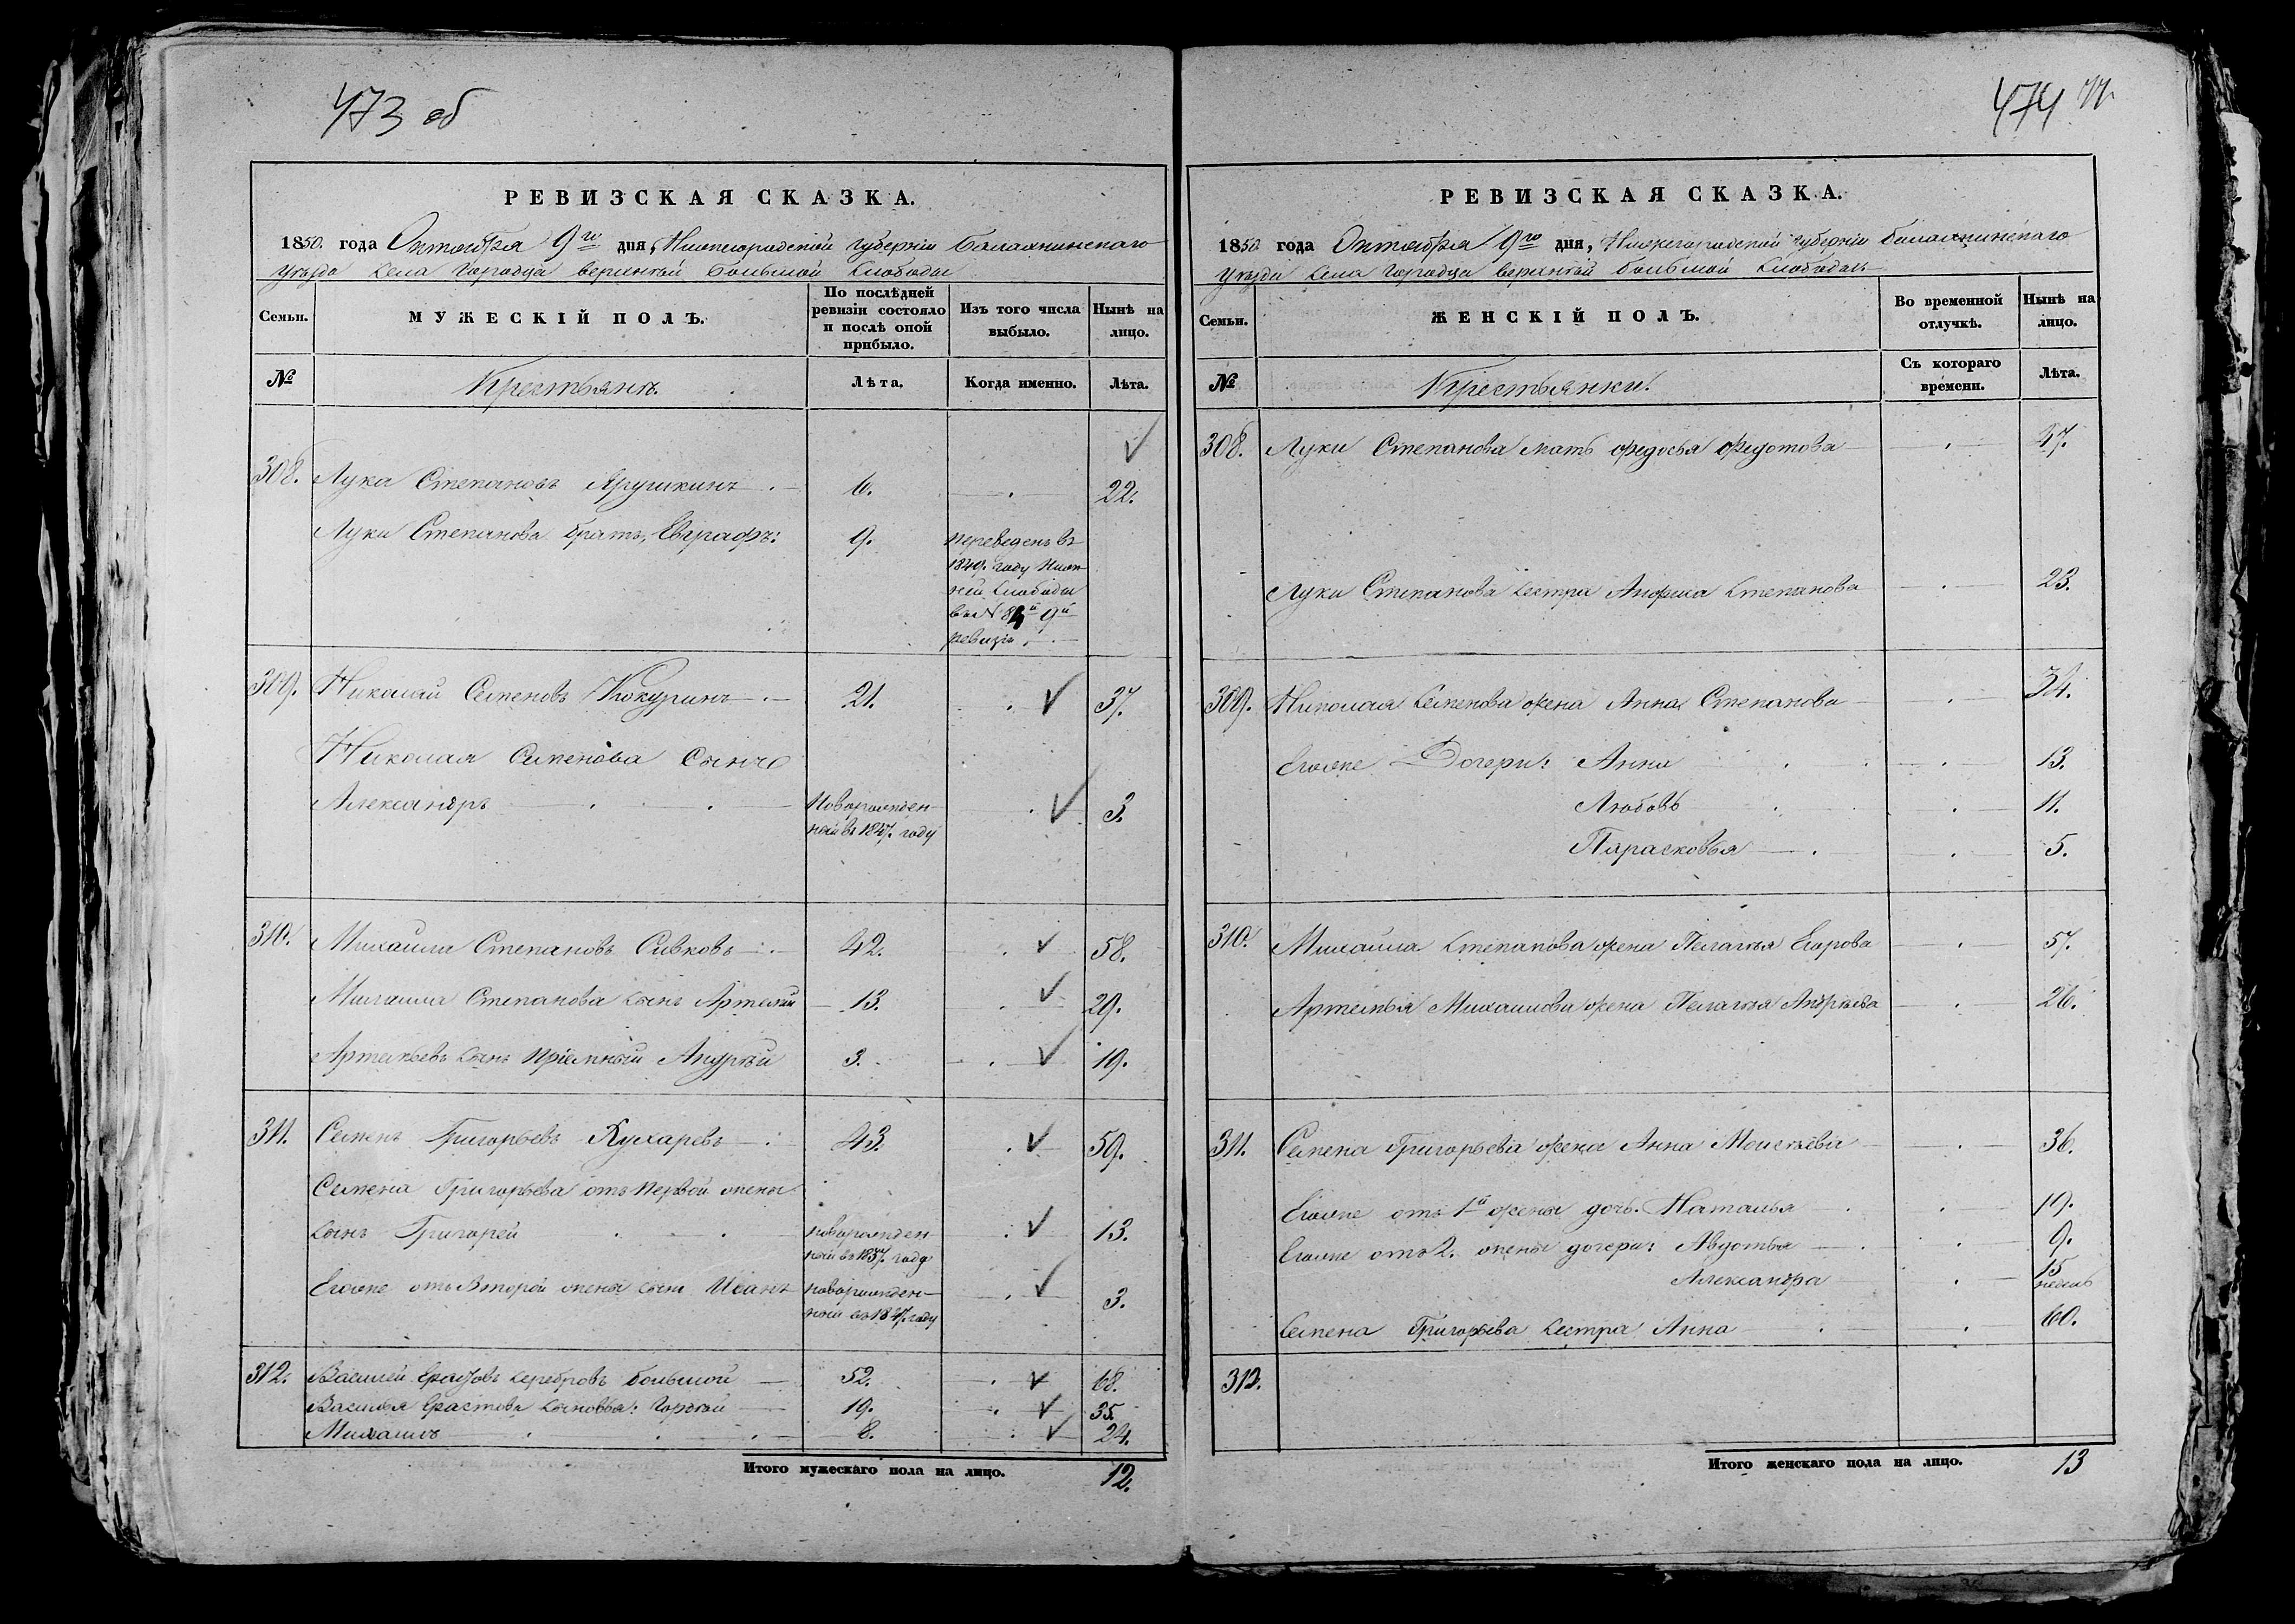 473 об
РЕВИЗСКАЯ СКАЗКА.
1850. года Октября 9го дня, Нижегородской губернiи Балахнинскаго
уѣзда села Городца верхнѣй большой слободы
Семьи.
МУЖЕСКІЙ ПОЛЪ.
По послѣдней ревизіи состояло и послѣ оной прибыло.
Изъ того числа выбыло.
Нынѣ на лицо.
№
Крестьянъ.
Лѣта.
Когда именно.
Лѣта.
308. Лука Степановъ 6. 22.
Луки Степанова братъ, Евграфъ: 9. переведенъ въ
1840. году Ниж-
ней Слободы
въ № 9й
ревизiи
309. Николай Семеновъ Кокуринъ 21. 37.
Николая Семенова сынъ
Александръ Новорожден- 3.
ный въ 1847. году
310. Михайла Степановъ Сивковъ 42. 58.
Михайла Степанова сынъ Артемiй 13. 29.
Артемьевъ сынъ прiемный Андрѣй 3. 19.
311. Семенъ Григорьевъ Кухаревъ 43. 59.
Семена Григорьева отъ первой жены
сынъ Григорей новорожден- 13.
ный въ 1837. годе
Еговже отъ второй жены сынъ Иванъ новорожден- 3.
ный въ 1847. году
312. Василей Ерастовъ Серебровъ большой 52. 68.
Василья Ерастова сыновья: Гордѣй 19. 35.
Михаилъ 8. 24.
Итого мужескаго пола на лицо. 12.
474
РЕВИЗСКАЯ СКАЗКА.
1850 года Октября 9го дня, Нижегородской губернiи балахнинскаго
уѣзда села Городца верхнѣй большой слободы
Семьи.
ЖЕНСКІЙ ПОЛЪ.
Во временной отлучкѣ.
Нынѣ на лицо.
№
Крестьянки.
Съ котораго времени.
Лѣта.
308. Луки Степанова мать Федосья Федотова 47.
Луки Степанова сестра Анфиса Степанова 23.
309. Николая Семенова жена Анна Степанова 34.
Еговже Дочери: Анна 13.
Любовь 11.
Парасковья 5.
310. Михайла Степанова жена Пелагѣя Егорова 57.
Артемья Михайлова жена Пелагѣя Андрѣева 26.
311. Семена Григорьева жена Анна Моисѣева 36.
Еговже отъ 1й жены дочь. Наталья 19.
Еговже отъ 2. жены дочери: Авдотья 9.
Александра 15 недель
Семена Григорьева сестра Анна 60.
312.
Итого женскаго пола на лицо. 13